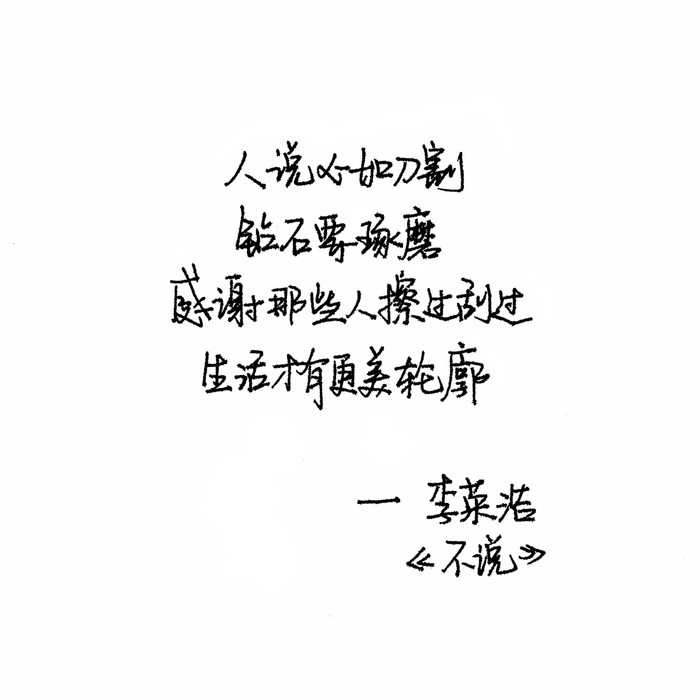 人说心如刀割
钻石要琢磨
感谢那些人擦过刮过
生活才有更美轮廓
— 李荣浩
《不说》